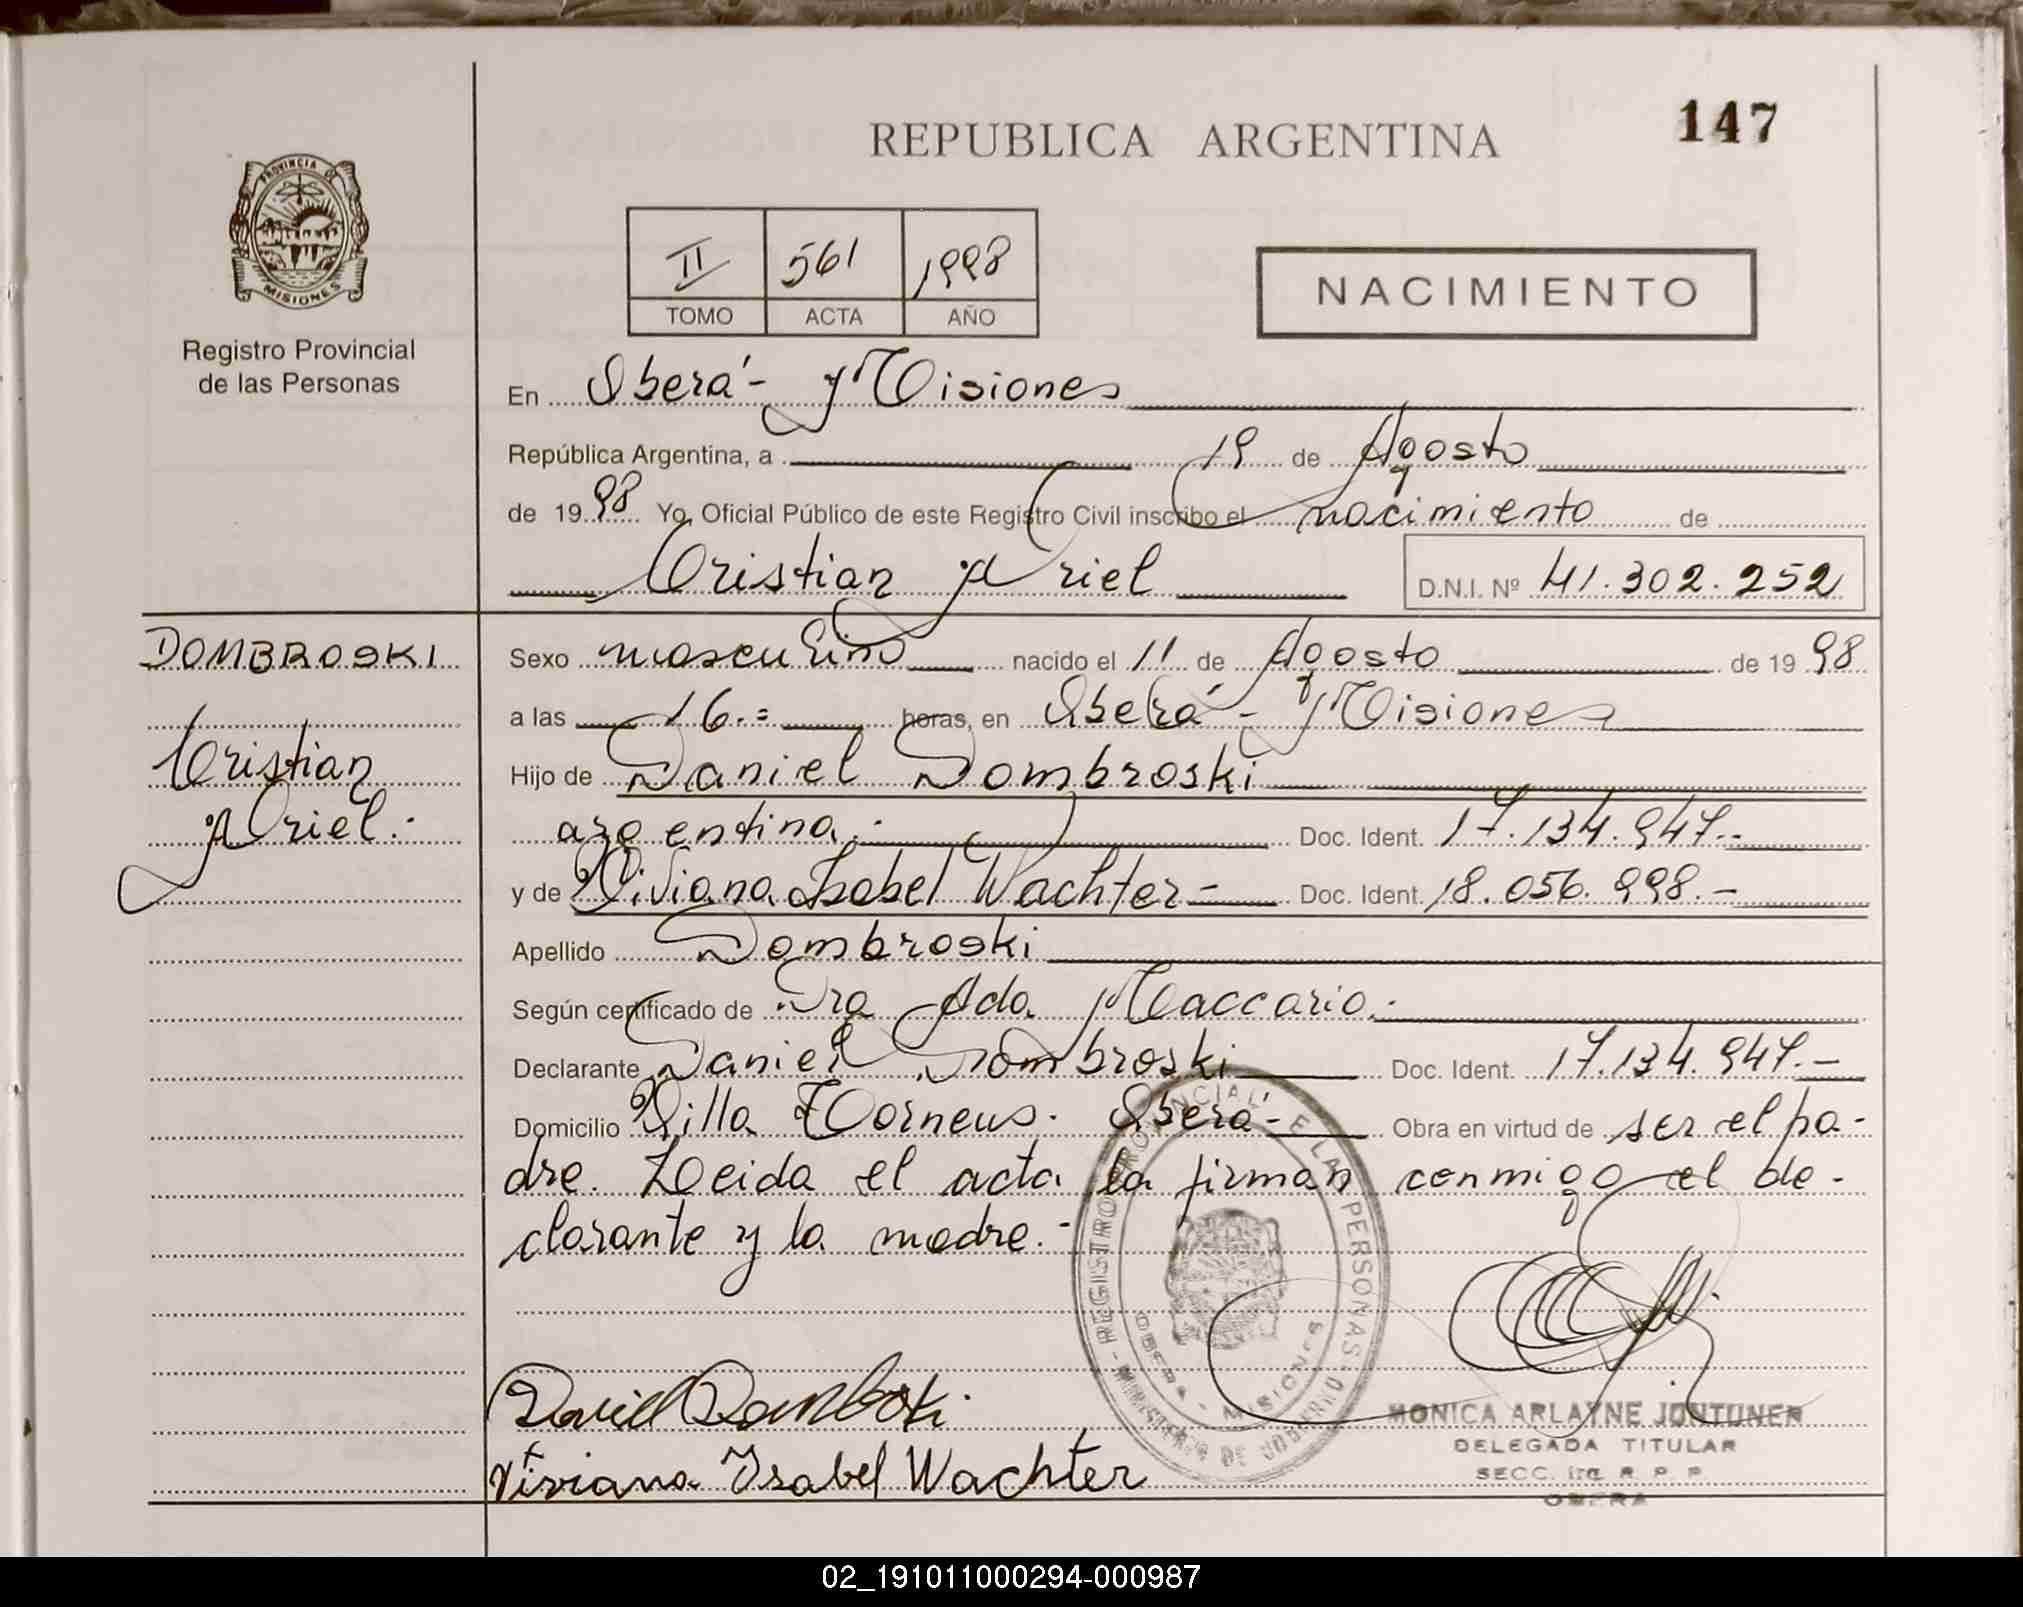 147
REPUBLICA ARGENTINA
PROVINCIA DE
MISIONES
Registro Provincial
de las Personas
II 561 1998
TOMO ACTA AÑO
NACIMIENTO
En Oberá - Misiones
República Argentina, a 19 de Agosto
de 1998 Yo, Oficial Público de este Registro Civil inscribo el nacimiento de
Cristian Ariel D.N.I. Nº 41.302.252
DOMBROSKI
Cristian
Ariel.-
Sexo masculino nacido el 11 de Agosto de 1998
a las 16.= horas, en Oberá - Misiones
Hijo de Daniel Dombroski
argentina.- Doc. Ident. 17.134.947.-
y de Viviana Isabel Wachter - Doc. Ident. 18.056.998.-
Apellido Dombroski
Según certificado de Dra Ada Maccario.-
Declarante Daniel Dombroski Doc. Ident. 17.134.947.-
Domicilio Villa Torneus. Oberá- Obra en virtud de ser el pa-
dre. Leida el acta la firman conmigo el de-
clarante y la madre.-
REGISTRO PROVINCIAL DE LAS PERSONAS
OBERA - MISIONES
MINISTERIO DE GOBIERNO
Daniel Dombroski
Viviana Isabel Wachter
MONICA ARLAYNE JONTUNER
DELEGADA TITULAR
SECC. 1ra R. P. P.
OBERA
02_191011000294-000987